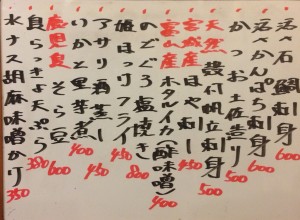 活〆石鯛刺身 600
活〆かんぱち刺身 600
かつお土佐造り 500
天然 殻付帆立刺身 500
宮城産 ほや刺身 450
富山産 ホタルイカ(酢味噌) 400
のどぐろ塩焼き 800
姫ほっけフライ 450
アサリ酒蒸し 450
いかと里芋煮 400
鹿児島 そら豆 600
島らっきょ天ぷら 380
水ナス胡麻味噌かけ 350